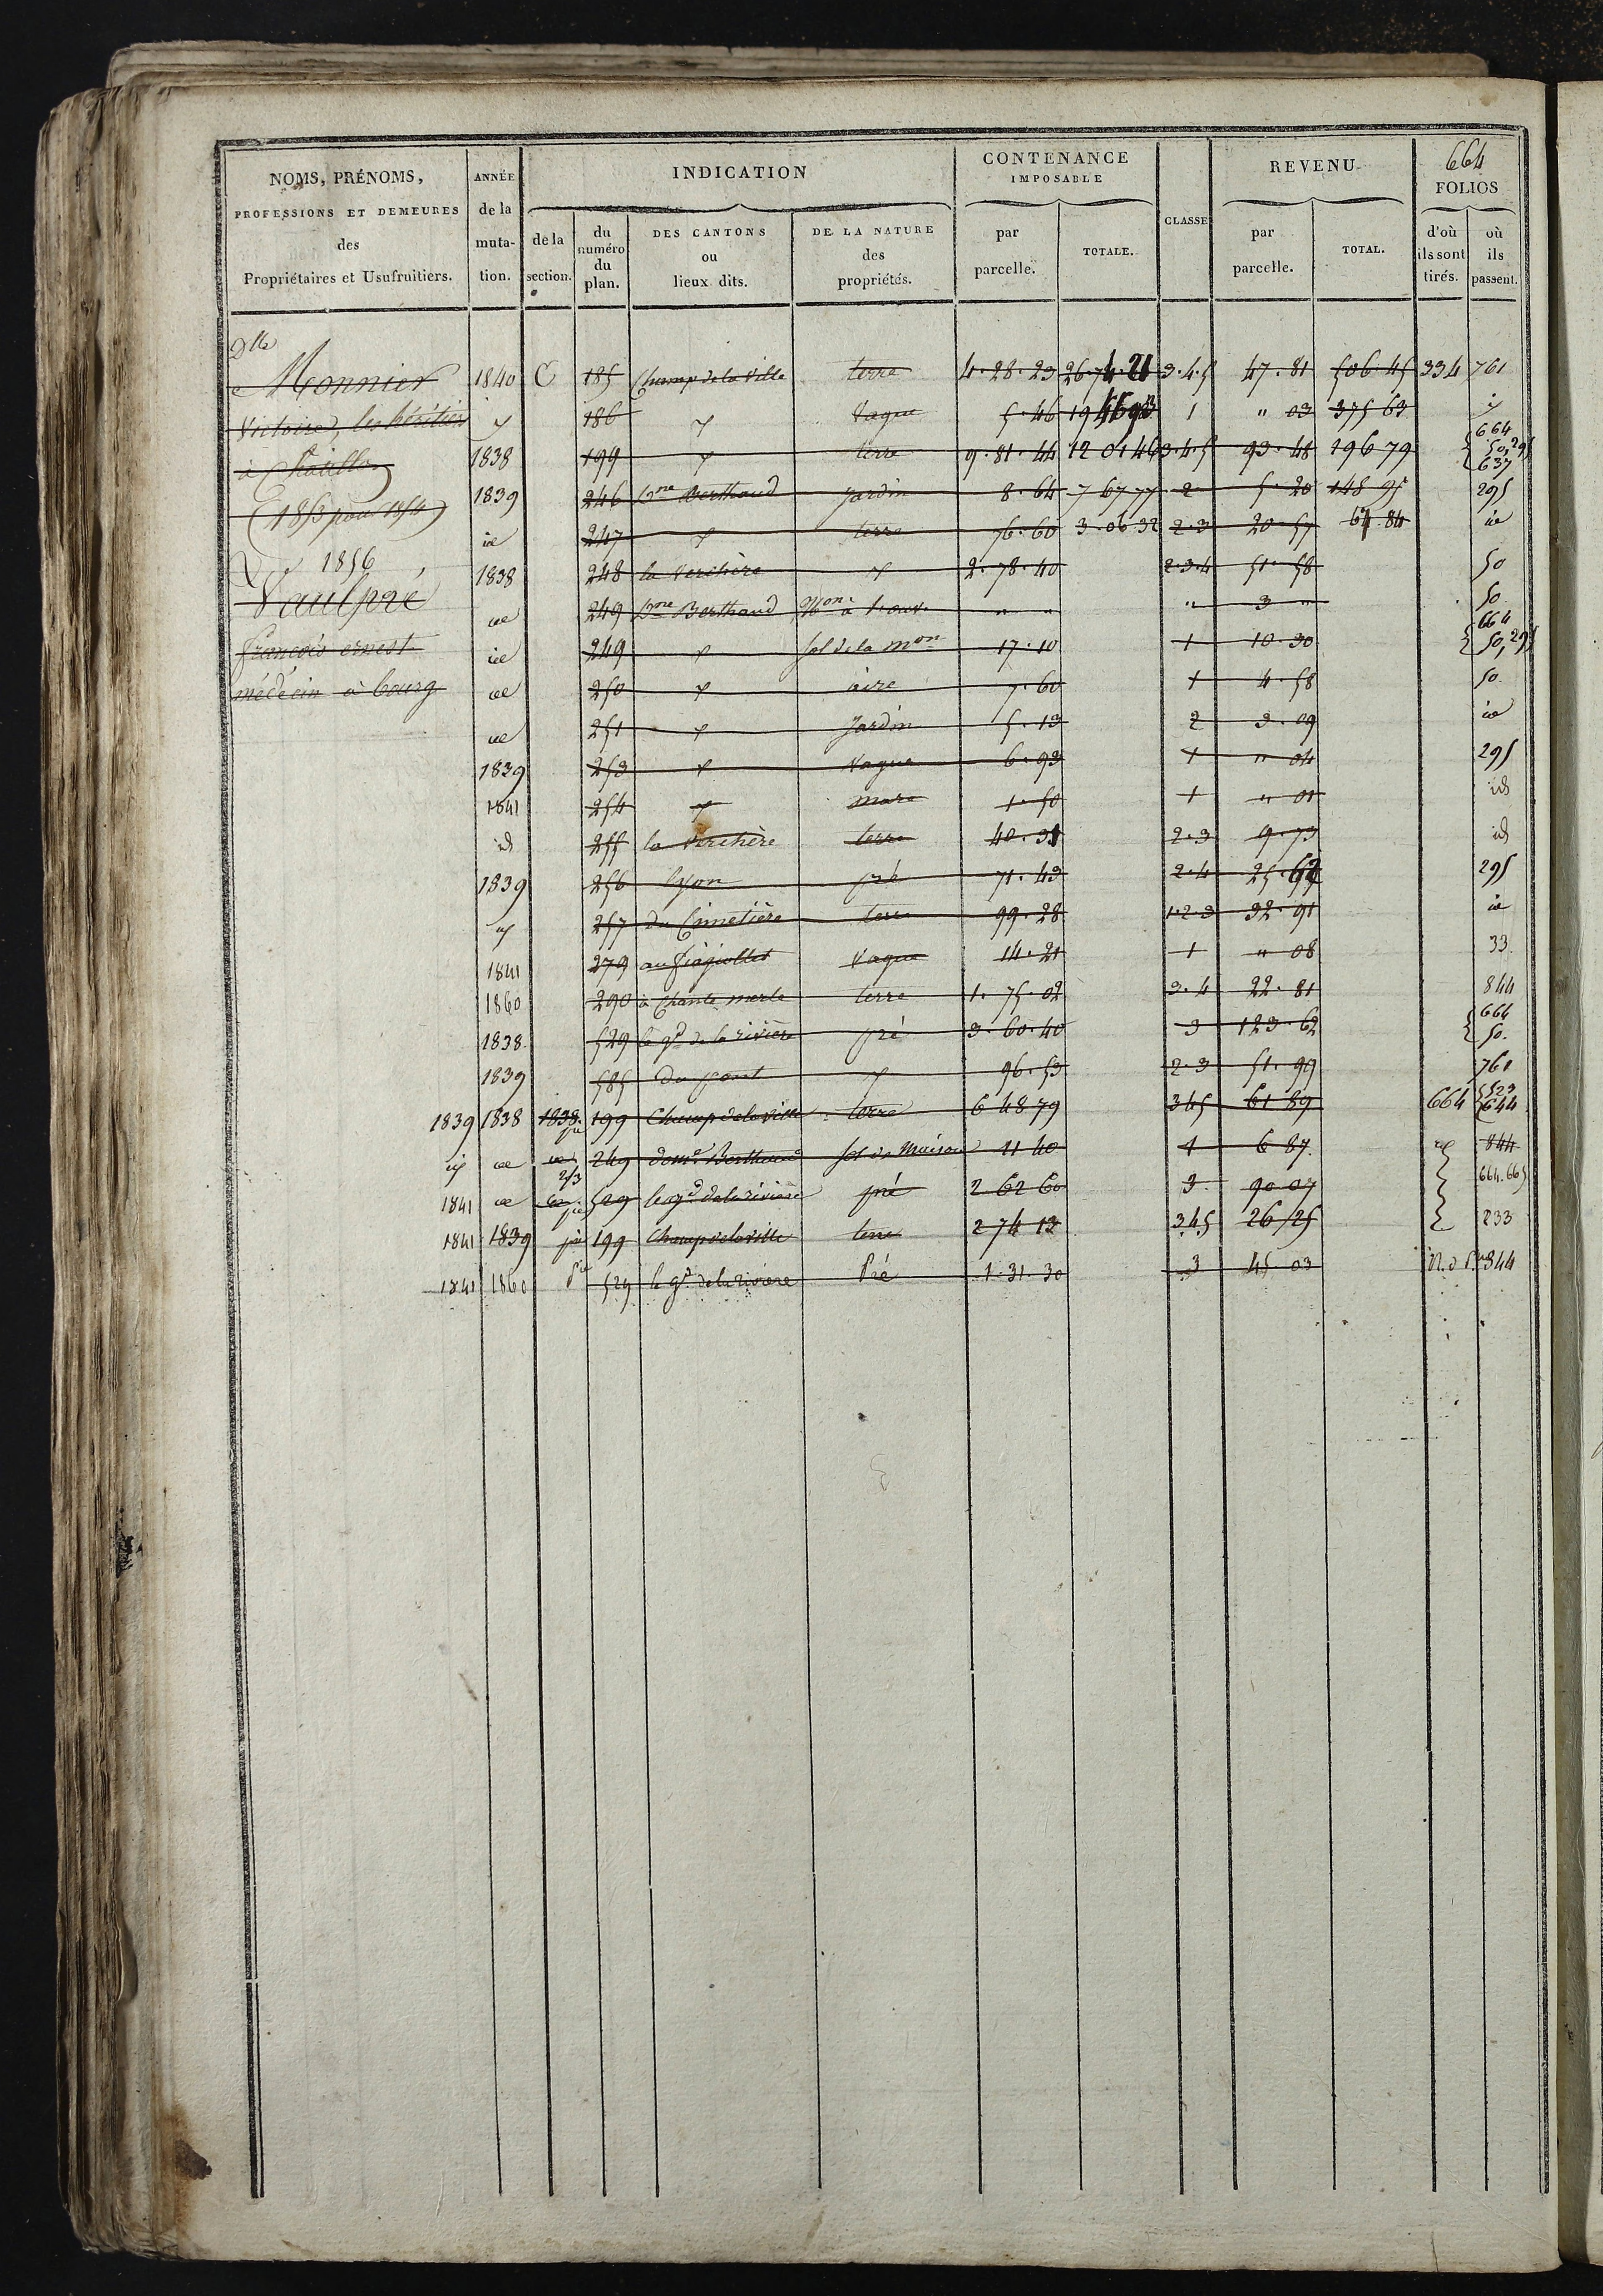 664
NOMS, PRÉNOMS, PROFESSIONS ET DEMEURES des Propriétaires et Usufruitiers.
ANNÉE de la muta- tion.
INDICATION
de la section.
du numéro du plan.
DES CANTONS ou lieux dits.
DE LA NATURE des propriétés.
CONTENANCE IMPOSABLE
par parcelle.
TOTALE.
CLASSE
REVENU
par parcelle.
TOTAL.
FOLIOS
d'où ils sont tirés.
où ils passent.
Dlle
Monnier 1840 C 185 Champ de la Ville terre 4.28.23 26.74.21 3.4.5 47.81 506.45 334 761
Victoire, les héritiers 186 Vague 5.46 1 " 03 375 63
à 1838 199 terre 9.81.44 12 01 46 3.4.5 93.48 196 79 664 50, 295 637
(1853 pour 1854) 1839 246 Dne Berthaud Jardin 8.64 7 67 77 2 5.20 148 95 295
id 247 terre 76.60 3.06.32 2.3 20.57 64.84 id
1856 1838 248 la Verchère 2.78.40 2.3.4 51.58 50
Vaulpré id 249 Dne Berthaud Mon à " " " 3 " 50
françois ernest id 249 sol de la mon 17.10 1 10.30 664 50, 295
médecin à bourg id 250 aire 7.60 1 4.58 50
id 251 Jardin 5.13 2 3.09 id
1839 253 Vague 6.93 1 " 04 295
1841 254 mare 1.50 1 " 01 id
id 255 la Verchère terre 40.31 2.3 9.73 id
1839 256 Lyon pré 71.43 2.4 25.62 295
257 du Cimetière terre 99.28 1.2.3 32.91 id
1841 279 Vague 14.21 1 " 08 33
1860 290 à Chante merle terre 1.75.02 3.4 22.81 844
1838 529 le gd de la rivière pré 3.60.40 3 123.62 664 50.
1839 585 Du pont 96.53 2.3 51.99 761
1839 1838 1838 pie 199 Champ de la ville terre 6 48 79 345 61 89 664 523 644
id id 2/3 249 dome Berthaud sol de Maison 11 40 1 6 87 844
1841 id pie 529 le gd de la rivière pré 2 62 60 3 90 07 664.665
1841 1839 pie 199 Champ de la ville terre 2 74 13 345 26/25 233
1841 1860 Pie 529 le gd de la rivière Pré 1.31.30 3 45 03 844